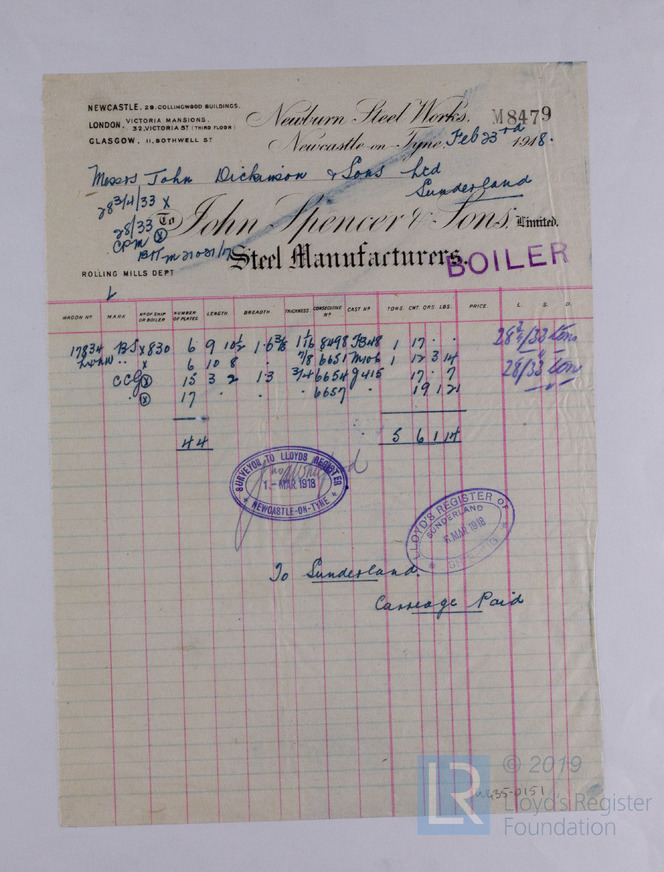 NEWCASTLE, 29. COLLINGWOOD BUILDINGS.
LONDON, VICTORIA MANSIONS. 32, VICTORIA ST (THIRD FLOOR)
GLASGOW, 11, BOTHWELL ST
Newburn Steel Works,
M8479
Newcastle-on-Tyne, Feb 23rd 1918.
Messrs John Dickinson & Sons Ltd
Sunderland
28 3/4/33 X
28/33
CPM X
To John Spencer & Sons, Limited.
Steel Manufacturers.
BOILER
ROLLING MILLS DEPT
WAGON No MARK No OF SHIP OR BOILER NUMBER OF PLATES LENGTH BREADTH THICKNESS CONSECUTIVE No CAST No TONS. CWT. QRS. LBS. PRICE. L. S. D.
17834 BS X 830 6 9 10 1/2 1·6 3/8 1 1/16 8498 1 17 · ·
28 3/4/33 tons
x 6 10 8 · 7/8 6651 1 12 3 14
28/33 ton
CCG X 15 3 2 1·3 3/4 6654 9415 17 · 7
· X 17 · · · 6657 · 19 1 21
44 5 6 1 14
SURVEYOR TO LLOYDS REGISTER
1 - MAR. 1918
NEWCASTLE-ON-TYNE
LLOYD'S REGISTER OF
SUNDERLAND
MAR 1918
SHIPPING
To Sunderland.
Carriage Paid
LR
© 2019
Lloyd's Register
Foundation